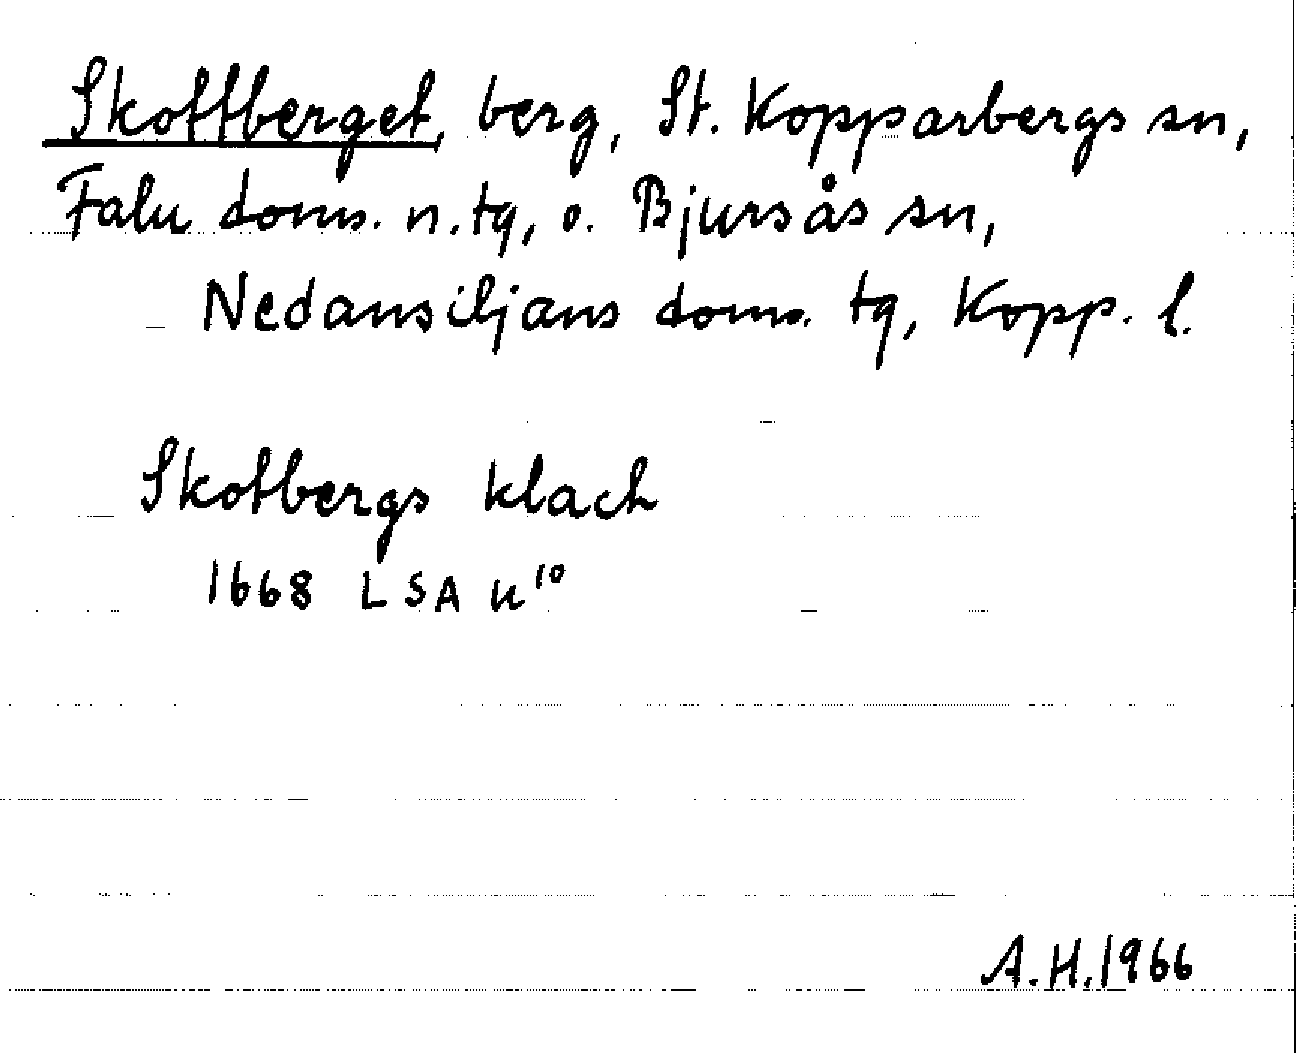 Skottberget, berg, St. Kopparbergs sn,
Falu doms. n. tg, o. Bjursås sn,
Nedansiljans doms. tg, Kopp. l.
Skotbergs klack
1668 LSA U 10
A.H. 1966